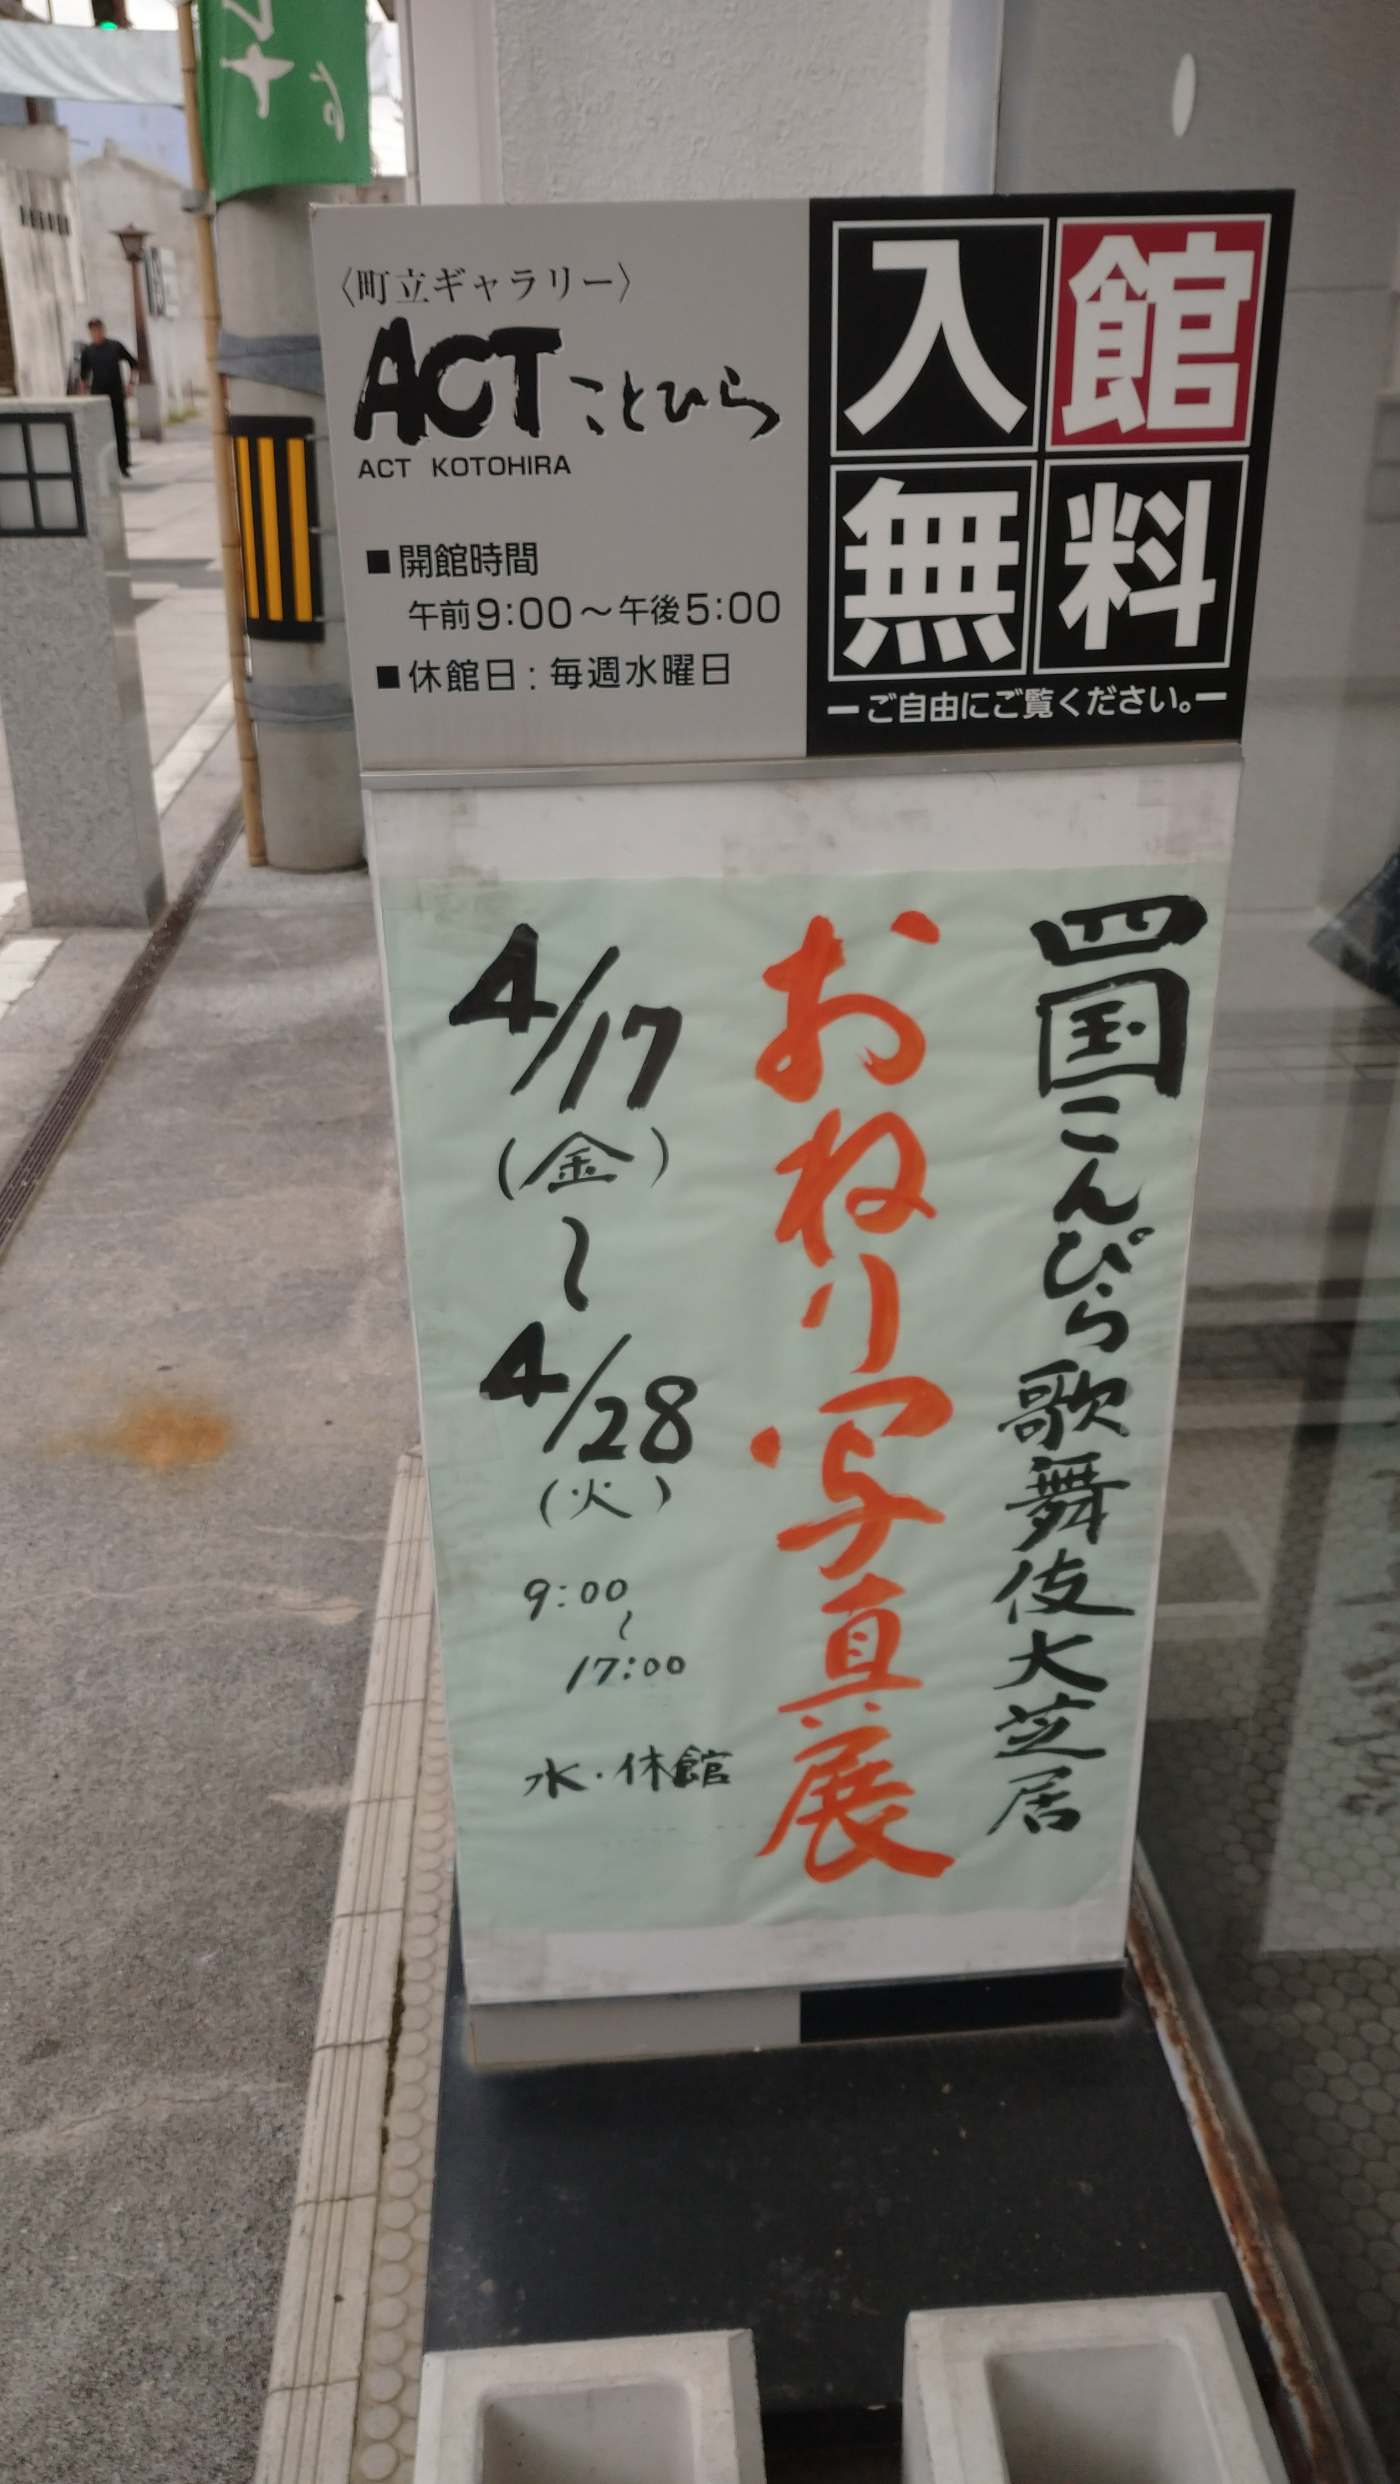 〈町立ギャラリー〉
ACTことひら
ACT KOTOHIRA
■開館時間
午前9:00～午後5:00
■休館日：毎週水曜日
入館
無料
ーご自由にご覧ください。ー
四国こんぴら歌舞伎大芝居
おねり写真展
4/17
（金）
〜
4/28
（火）
9:00
〜
17:00
水・休館